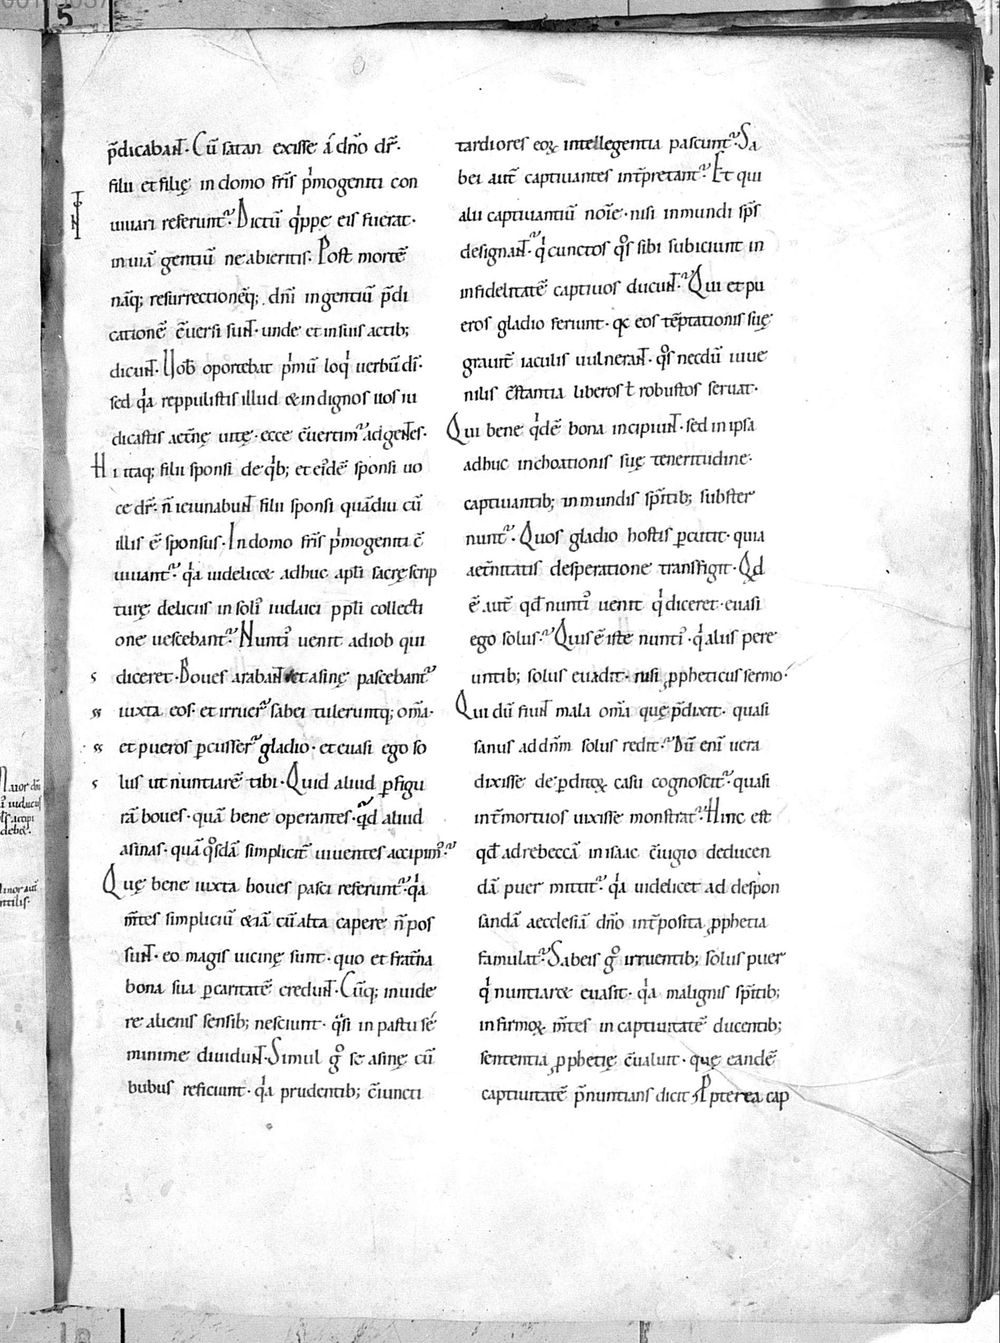 p̄dicabant. Cū satan exisse á dn̄o dr̄.
filii et filię in domo fr̄is pⁱmogeniti con
uiuari referunt᷑. Dictū qⁱppe eis fuerat.
in uiā gentiū ne abieritis. Post mortē
nāq; resurrectionēq; dn̄i in gentiū p̄di
cationē c̄uersi sunt. unde et in suis actib;
dicunt. Uob̄ oportebat pⁱmū loqⁱ uerbū di̅.
sed qᵃ reppulistis illud & indignos uos iu
dicastis aetn̄ę uitę. ecce c̄uertim᷑ ad gentes.
Hi itaq; filii sponsi de qⁱb; et eidē sponsi uo
ce dr̄. n̄ ieiunabunt filii sponsi quādiu cū
illis ē sponsus. In domo fr̄is pⁱmogeniti c̄
uiuant᷑. qᵃ uidelicet adhuc apl̄i sacrę scrip
turę deliciis in soliꝰ iudaici ppl̄i collecti
one uescebant᷑. Nuntiꝰ uenit ad iob qui
diceret. Boues arabant et asinę pascebant᷑
iuxta eos. et irruer᷑ sabei tuleruntq; om̄a.
et pueros ꝑcusser᷑ gladio. et euasi ego so
lus ut nuntiarē tibi. Quid aliud ꝑ figu
rā boues. quā bene operantes. q̄d aliud
asinas. quā qͦsdā simplicit̄ uiuentes accipimꝰ.᷑
Quę bene iuxta boues pasci referunt᷑. qᵃ
m̄tes simpliciū & iā cū alta capere n̄ pos
sunt. eo magis uicinę sunt. quo et frat̄na
bona sua ꝑ caritatē credunt. Cūq; inuide
re alienis sensib; nesciunt. qᵃsi in pastu sé
minime diuidunt. Simul gͦ se asinę cū
bubus reficiunt. qᵃ prudentib; c̄iuncti
tardiores eoꝝ intellegentia pascunt᷑. Sa
bei aut̄ captiuantes int̄pretant᷑. Et qui
alii captiuantiū noīe. nisi inmundi sp̄s
designant᷑. qⁱ cunctos qͦs sibi subiciunt in
infidelitatē captiuos ducunt.᷑ Qui et pu
eros gladio feriunt. qc eos tēptationis suę
grauit̄ iaculis uulnerant. qͦs necdū iuue
nilis c̄stantia liberos ł robustos seruat.
Qui bene qⁱdē bona incipiunt. sed in ipsa
adhuc inchoationis suę teneritudine.
captiuantib; inmundis sp̄itib; subster
nunt᷑. Quos gladio hostis ꝑcutit. quia
aet̄nitatis desperatione transfigit. Qd
ē aut̄ qd̄ nuntiꝰ uenit qⁱ diceret. euasi
ego solus.᷑ Quis ē iste nuntiꝰ. qⁱ aliis pere
untib; solus euadit. nisi ꝓpheticus sermo.
Qui dū fiunt mala om̄a quę p̄dixit. quasi
sanus ad dn̄m solus redit.᷑ Dū eni uera
dixisse de ꝑditoꝝ casu cognoscit᷑. quasi
int̄ mortuos uixisse monstrat᷑. Hinc est
qd̄ ad rebeccā in isaac c̄iugio deducen
dā puer mittit᷑. qᵃ uidelicet ad despon
sandā aecclesiā dn̄o int̄posita ꝓphetia
famulat᷑. Sabeis gͦ irruentib; solus puer
qⁱ nuntiaret euasit. qᵃ malignis sp̄itib;
infirmoꝝ m̄tes in captiuitatē ducentib;
sententia ꝓphetię c̄ualuit. quę eandē
captiuitatē p̄nuntians dicit. Ꝓpterea cap